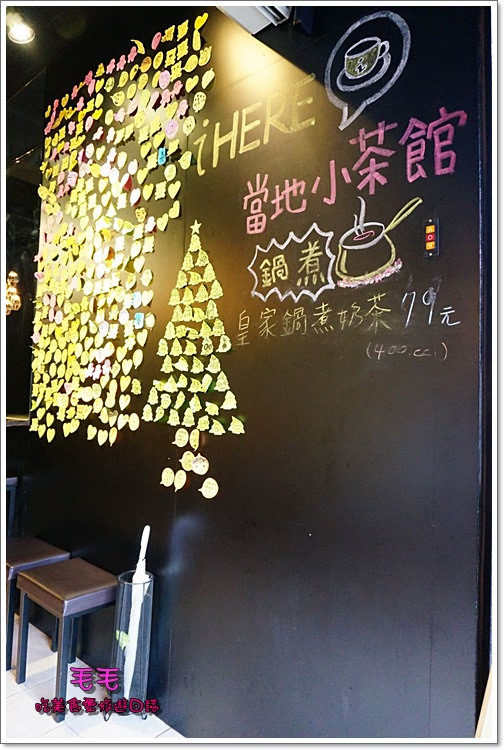 iHERE
當地小茶館
鍋煮
皇家鍋煮奶茶 79元
(400.cc)
毛毛
吃美食要旅遊日誌